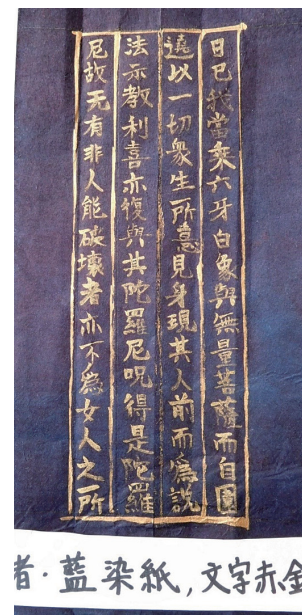 日已我當乘六牙白象與無量菩薩而自圍
遶以一切衆生所憙見身現其人前而爲説
法示教利喜亦復與其陀羅尼呪得是陀羅
尼故无有非人能破壞者亦不爲女人之所
者・藍染紙,文字赤金